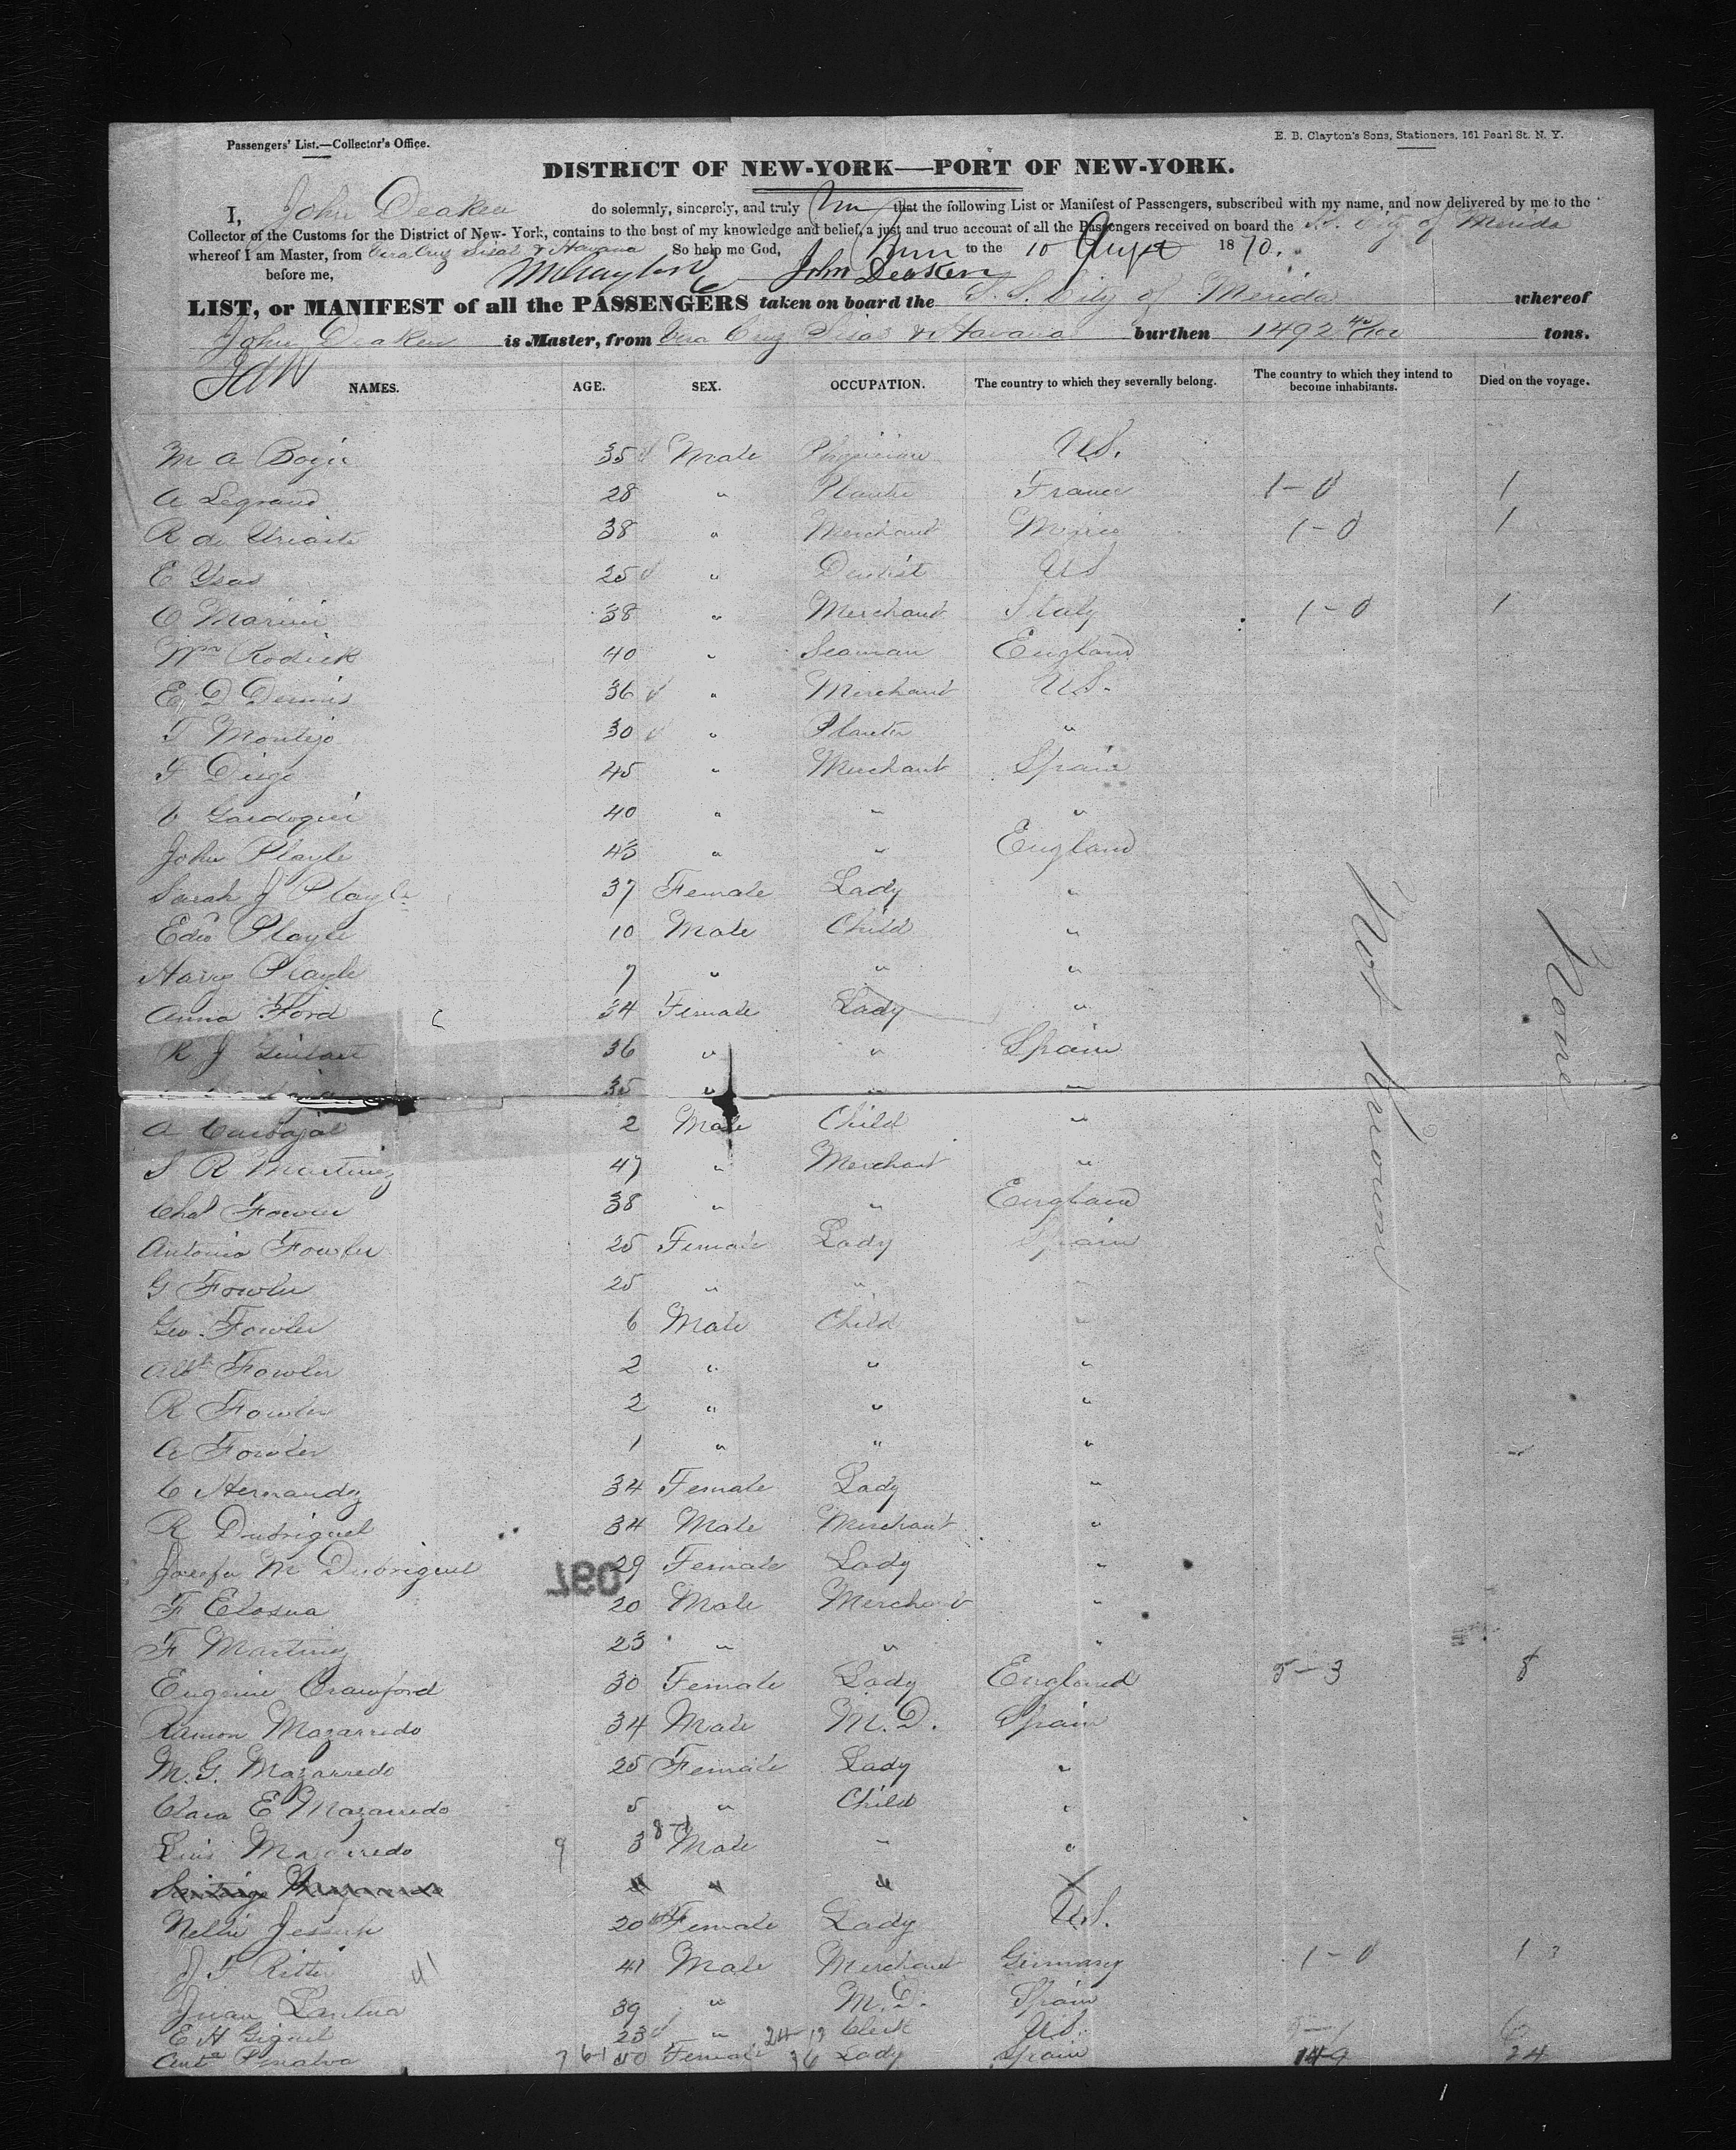 Passengers' List.—Collector's Office.
E. B. Clayton's Sons, Stationers, 161 Pearl St. N. Y.
DISTRICT OF NEW-YORK—PORT OF NEW-YORK.
I, John Deaken do solemnly, sincerely, and truly that the following List or Manifest of Passengers, subscribed with my name, and now delivered by me to the
Collector of the Customs for the District of New-York, contains to the best of my knowledge and belief, a just and true account of all the Passengers received on board the S.S. City of Merida
whereof I am Master, from Vera Cruz Sisal & Havana So help me God, to the 10 Augst 1870.
before me, John Deaken
LIST, or MANIFEST of all the PASSENGERS taken on board the S.S. City of Merida whereof
John Deaken is Master, from Vera Cruz Sisal & Havana burthen 1492 40/100 tons.
NAMES. AGE. SEX. OCCUPATION. The country to which they severally belong. The country to which they intend to become inhabitants. Died on the voyage.
M A 35 Male Physician U.S.
A Legrand 28 " Planter France 1-0 1
R de Uriarte 38 " Merchant Mexico 1-0 1
E Ysas 25 " Dentist US
C Marini 38 " Merchant Italy 1-0 1
Wm Rodick 40 " Seaman England
E D Dennis 36 " Merchant U.S.
T Montejo 30 " Planter "
F Diego 45 " Merchant Spain
40 " " "
John Playle 43 " " England
Sarah J Playle 37 Female Lady "
Edw Playle 10 Male Child "
Harry Playle 7 " " "
Anna Ford 34 Female Lady "
R J 36 " " Spain
35 " " "
A Carbajal 2 Male Child "
S R Martinez 47 " Merchant "
Chas Fowler 38 " " England
Antonia Fowler 25 Female Lady Spain
G Fowler 25 " " "
Geo. Fowler 6 Male Child "
Albt Fowler 2 " " "
R Fowler 2 " " "
A Fowler 1 " " "
C Hernandez 34 Female Lady "
R Dubriguel 34 Male Merchant "
Josefa M Dubriguel 29 Female Lady "
F Elosua 20 Male Merchant "
F Martinez 23 " " "
Eugenie Crawford 30 Female Lady England 5-3 8
Ramon Mazarredo 34 Male M.D. Spain
M. G. Mazarredo 25 Female Lady "
Clara E Mazarredo 5 " Child "
Luis Mazarredo 9 3 8-1 Male " "
Nellie 20 Female Lady U.S.
J F 41 41 Male Merchant Germany 1-0 1
Juan 39 " M.D. Spain
E H Giquel 23 " Clerk US.
Anta Penalva 50 Female Lady Spain 14-9 24
Not Known
None
760